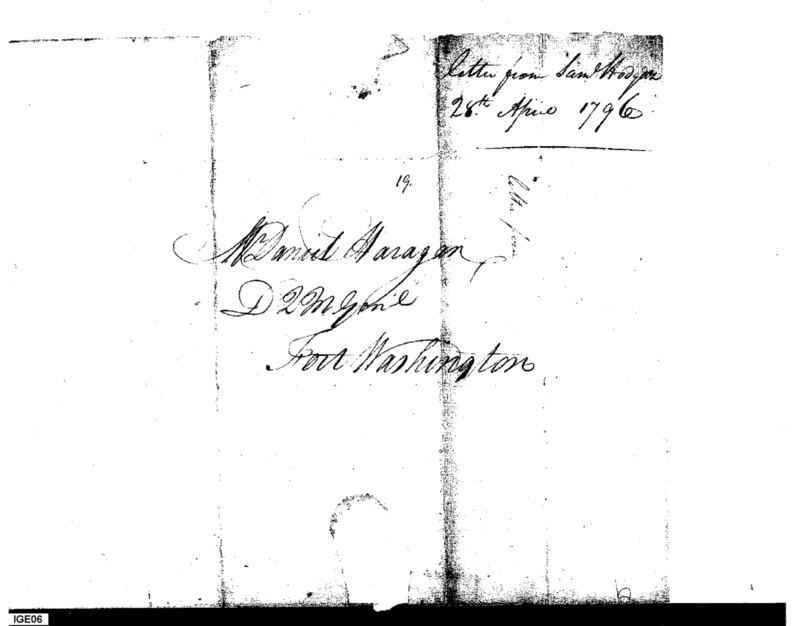 letter from Saml Hodgdon
28th April 1796
19.
letter from
Mr Daniel Haragan
D 2 M Genl
Fort Washington
IGE06